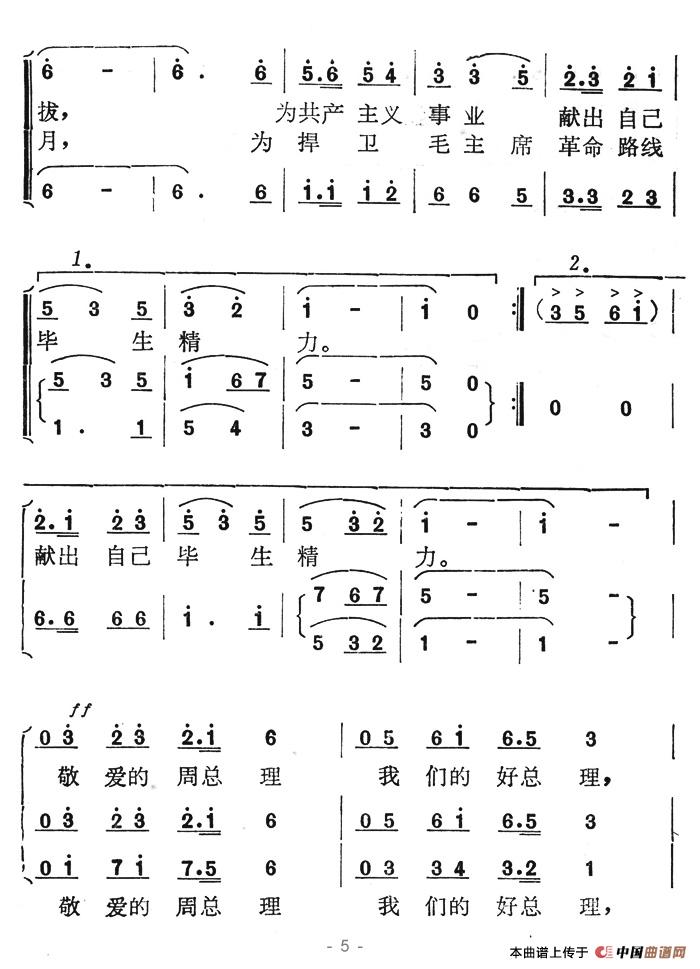 6 - 6 . 6 5.6 5 4 3 3 5 2.3 2 1
拔, 为共产 主义 事业 献出 自己
月, 为 捍 卫 毛主 席 革命 路线
6 - 6 . 6 1.1 1 2 6 6 5 3.3 2 3
1. 2.
5 3 5 3 2 1 - 1 0 :‖ (3 5 6 1)
毕 生 精 力。
5 3 5 1 6 7 5 - 5 0 :‖ 0 0
1 . 1 5 4 3 - 3 0
2.1 2 3 5 3 5 5 3 2 1 - 1 -
献出 自己 毕 生 精 力。
6.6 6 6 1 . 1 7 6 7 5 - 5 -
5 3 2 1 - 1 -
ff
0 3 2 3 2.1 6 0 5 6 1 6.5 3
敬 爱的 周总 理 我 们的 好总 理,
0 3 2 3 2.1 6 0 5 6 1 6.5 3
0 1 7 1 7.5 6 0 3 3 4 3.2 1
敬 爱的 周总 理 我 们的 好总 理,
- 5 -
本曲谱上传于 中国曲谱网